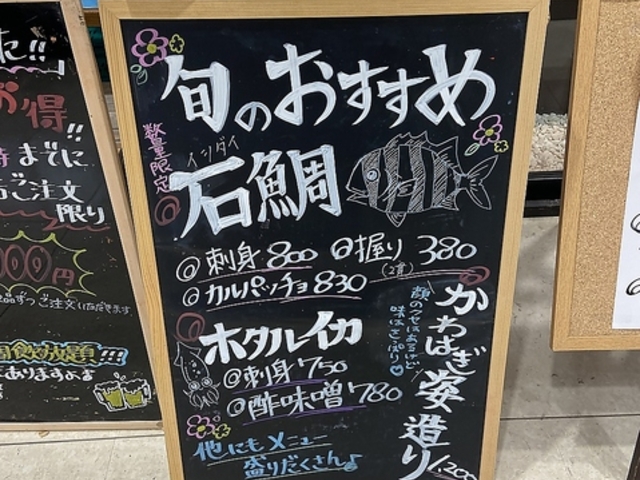 旬のおすすめ
数量限定
イシダイ
石鯛
◎刺身 800 ◎握り(2貫) 380
◎カルパッチョ 830
ホタルイカ
◎刺身 750
◎酢味噌 780
かわはぎ姿造り 1,200
顔のクセはあるけど
味はさっぱり♡
他にもメニュー
盛りだくさん♪
た!!
お得!!
までに
ご注文
限り
00円
ずつご注文いただきます
飲放題!!!
ありますよ